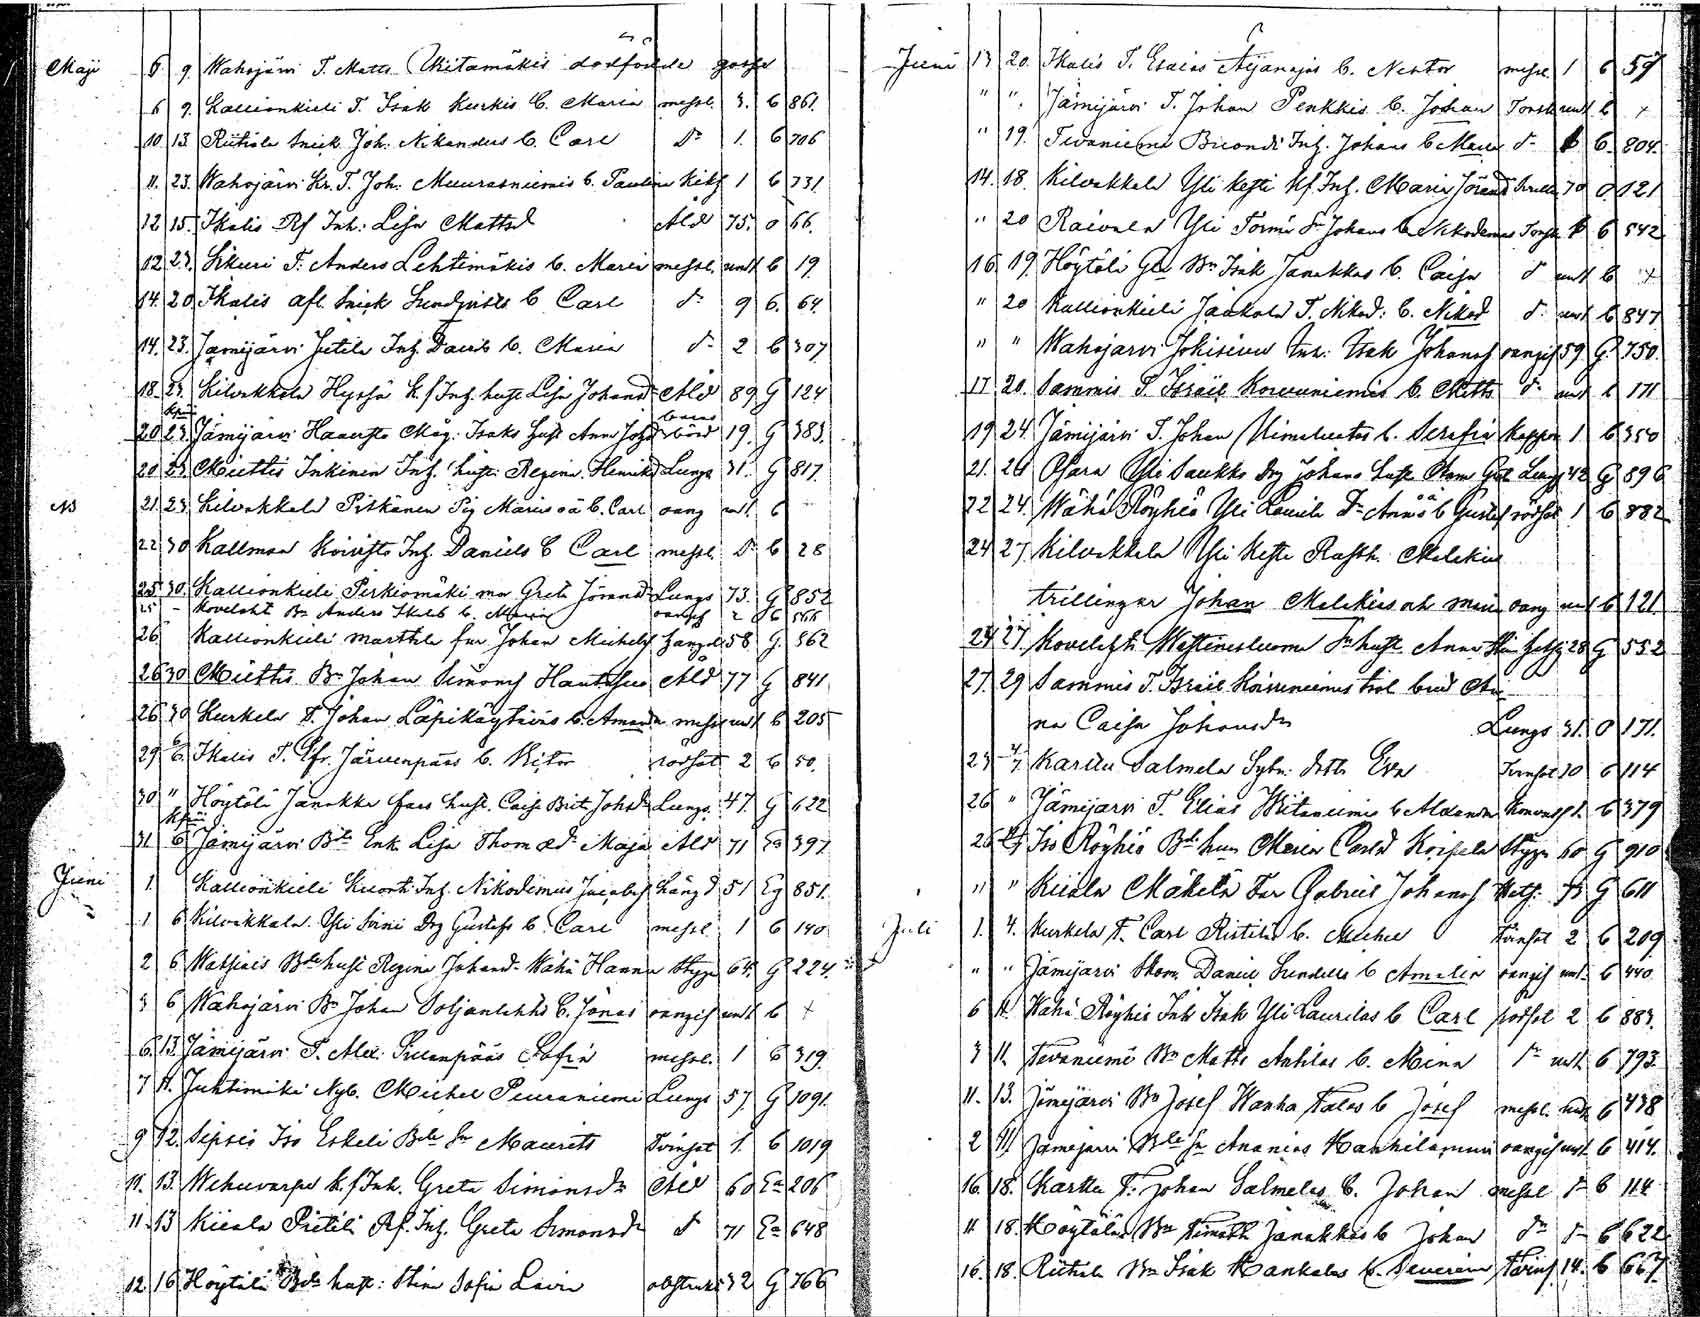 Maji 6 9 Wahojärvi T. Matts Witamäkis dödfödde gosse
6 9. Kallionkieli T. Isak Kurkis b. Maria messl. 3. b 861.
10 13 Riitiala Snick. Joh. Nikanders b Carl do 1. b 706
11. 23. Wahojärvi Kr. T. Joh. Muurasniemis b. Paulina Kikh 1 b 731.
12 15. Ikalis Rf Inh. Lisa Mattsd Åld 75. o 66.
12 23. Sikuri T. Anders Lehtimäkis b. Maria messl. unt b 19
14. 20. Ikalis afl Snick Sundqvists b Carl do 9 b. 64.
14. 23. Jämijärvi Jutila Inh. David b. Maria do 2 b 307
18 23. Kilvakkala Hyssä K.f Inh. hust Lisa Johansd Åld 89. G 124
20 23. Jämijärvi Måg. Isaks hust Anna Johd barnsbörd 19. G 383.
20 23. Miettis Inkinen Inh. hust. Regina Henriksd Lungs 31. G 817.
21. 23. Kilvakkala Pitkänen Pig Marias oä b. Carl oang unt. b
22 30 Kallmaa Koivisto Inh. Daniels b Carl messl. do b 28
25. 30. Kallionkieli Pirkiomäki Greta Jöransd Lungs 73. G 852
25 - Kovelaht Bn Anders b. Maria oangif 2 b 566
26. Kallionkieli Marttila far Johan Michelsf 58 G. 862
26 30 Miettis Bn Johan Simonsf Hautasuo Åld 77 G 841
26 30 Kurkela T. Johan Läpikäytäväs b. Amanda messl unt b 205
29 6. Ikalis T. Efr. Järvenpääs b. Victor rödsot 2 b 50.
30 " Höytölä Janakka fars hust. Caisa Brit. Johsd Lungs. 47. G 622
31 6 Jämijärvi Bde Enk. Lisa Thomasd. Maja Åld 71 Ea 397.
Juni 1. Kallionkieli Kuont. Inh. Nikodemus Jacobsf 51 Eg 851.
1 6 Kilvakkala Yli Sirni Drg Gustafs b. Carl messl. 1 b 140
2 6 Watsiais Bde hust Regina Johansd. Wähä Hanna Slyga 64. G 224.
3 6 Wahojärvi Bn Johan Soljanlahti b. Jonas oangif unt b +
6. 13. Jämijärvi T. Alex. Sofia messl. 1 b 319.
7 11. Juhtimäki Nyb. Michel Peuraniemi Lungs 57. G 1091.
9 12. Sipsiö Iso Eskeli Bde Sn Maurits Tvinsot 1. b 1019
11. 13. Wehuvarpe K.f Inh. Greta Simonsdr Åld 60 Ea 206
11. 13 Kiiala Pietilä Rf. Inh. Greta Simonsdr do 71 Ea 648
12. 16 Höytölä Bde hust. Stina Sofia Lavia obstrukt 32 G 766
Juni 13 20. Ikalis T. Esaias Äijänojas b. Nestor messl. 1 b 57
" " Jämijärvi T. Johan Penkkis b. Johan Torsk unt b +
" 19. Tevaniemi Inh. Johans b do b. 804.
14. 18. Kilvakkala Yli Kesti Kf. Inh. Maria Jöransd 70 o. 121
" 20 Raivala Yli Formi Sn Johans b Nikodemus Torsk b 542
16 19. Höytölä Bn Isak Janakkas b. Caisa do unt b +
" 20 Kallionkieli Jaakola T. Nikod: b. Nikod do unt b 847
" " Wahojärvi Jokisivu Inh. Isak Johansf oangif 59. G. 750.
17 20. Sammis T. Israel Koivuniemis b. Matts do unt b 171
19 24 Jämijärvi T. Johan Uimaluotos b. Serafia Koppor 1 b 350
21. 24 Osara Yli Saukko Drg Johans hust Lungs 42 G 896
22 24. Wähä Röyhiö Yli Laurila b Gustaf rödsot 1 b 882
24 27. Kilvakkala Yli Kesti Rusth. Malakias
trillingar Johan Malakias och oang unt b 121.
24 27. Kovelahti Wästinesluoma Sn hust Anna 28 G 552
27. 29 Sammis T. Israel Koivuniemis An-
na Caisa Johansdr Lungs 31. o 171.
23 4/7 Karttu Salmela Sytn. dottr Eva Tvinsot 10 b 114
26 " Jämijärvi T. Elias Witaniemis b Alexander 1. b 379
26 Iso Röyhiö Maria Carlsd Koissela Slyga 60 G 910
" " Kiiala Mäkelä Far Gabriel Johansf G 611
Juli 1. 4. Kurkela T. Carl Ristiläs b. Michel Tvinsot 2 b 209
" " Jämijärvi Skom. Daniel Sundells b Amalia oangif unt. b 440
6 11. Wähä Röyhiö Inh Isak Yli Laurilas b Carl rödsot 2 b 883.
3 11. Tevaniemi Bn Matts Anttilas b. Mina do unt. b 793.
11. 13. Jämijärvi Bn Josef Wanha Talos b Josef messl. unt. b 438
2 11. Jämijärvi Bde Sn Ananias oangif unt. b 414.
16. 18. Karttu T. Johan Salmelas b. Johan messl do b 114
11 18. Höytölä Bn Janakkas b Johan do do b 622
16. 18. Riitiala Bn Isak Hankalas b. Severin Tvins 14. b 667.